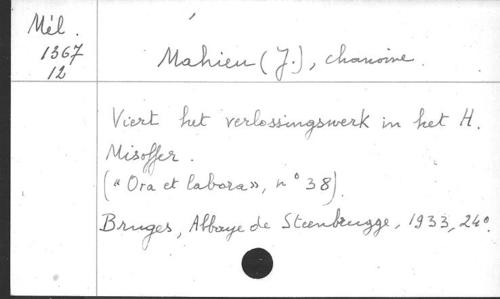 Mél.
1367
12
Mahieu (J.), chanoine.
Viert het verlossingswerk in het H.
Misoffer.
(« Ora et labora », n° 38).
Bruges, Abbaye de Steenbrugge, 1933, 24°.